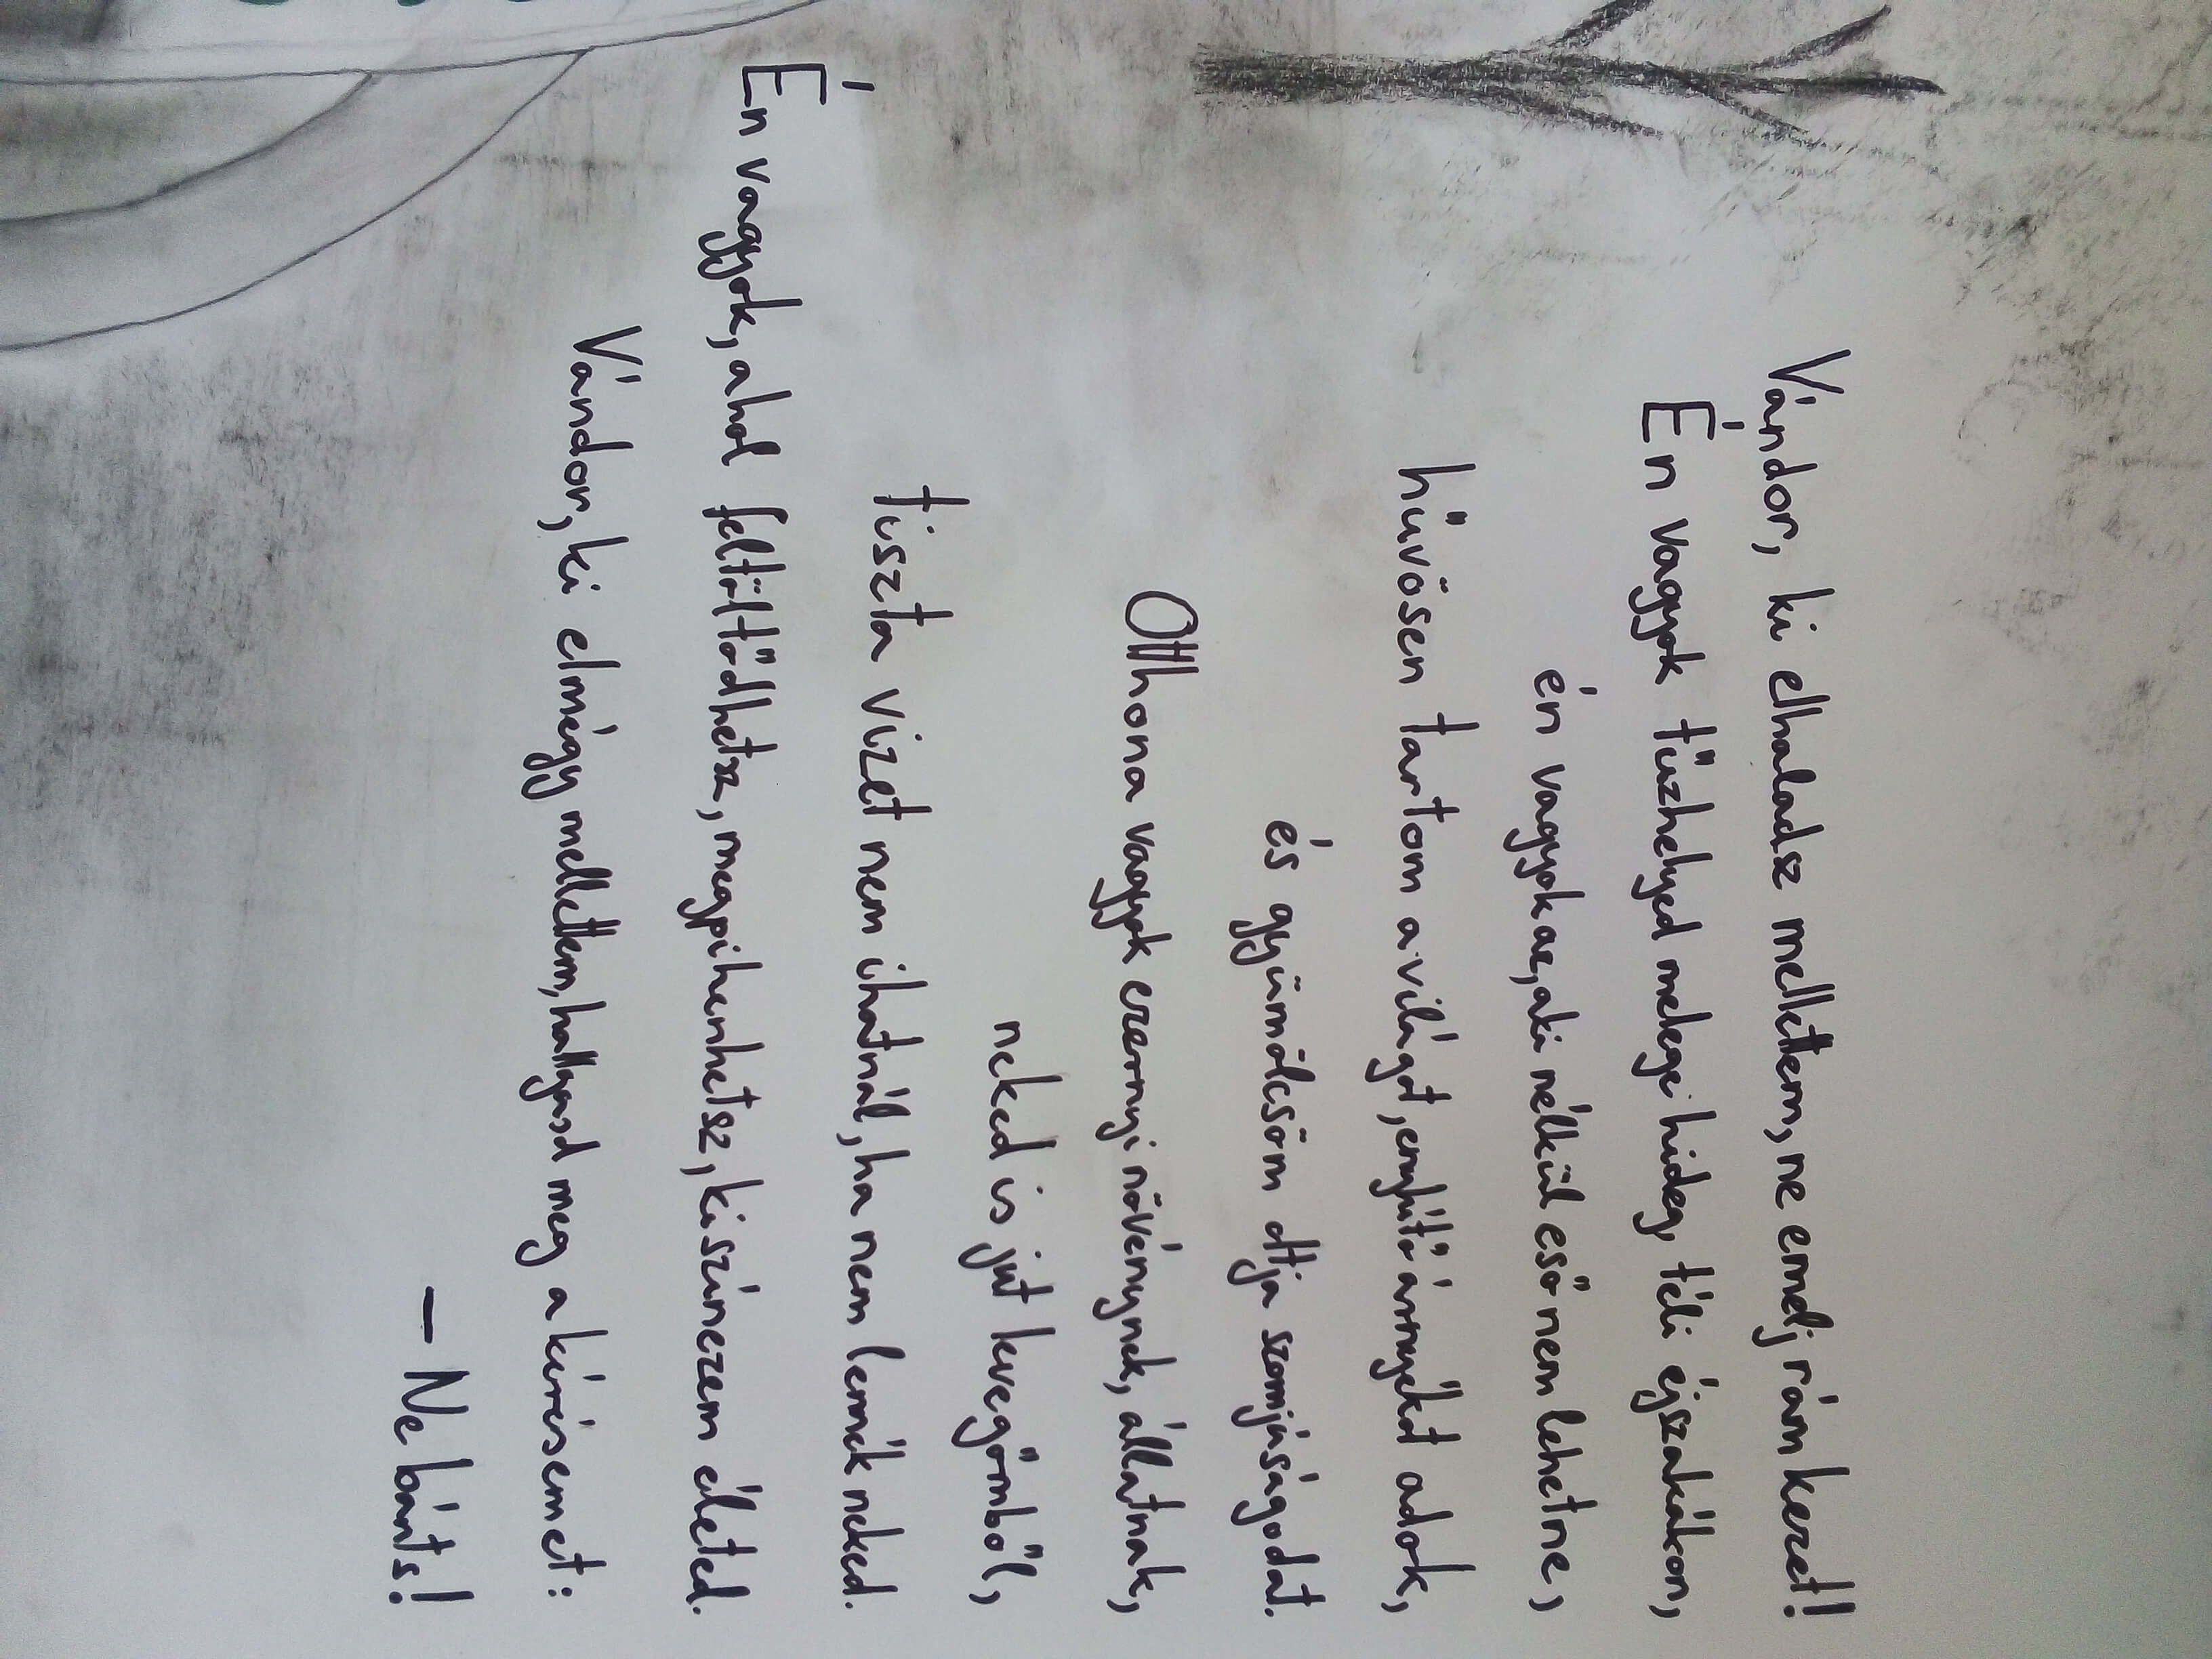 Vándor, ki elhaladsz mellettem, ne emelj rám kezet!
Én vagyok tűzhelyed melege hideg, téli éjszakákon,
én vagyok az, aki nélkül eső nem lehetne,
hűvösen tartom a világot, enyhítő árnyékot adok,
és gyümölcsöm oltja szomjúságodat.
Otthona vagyok ezernyi növénynek, állatnak,
neked is jut levegőmből,
tiszta vizet nem ihatnál, ha nem lennék neked.
Én vagyok, ahol feltöltődhetsz, megpihenhetsz, kiszínezem életed.
Vándor, ki elmégy mellettem, hallgasd meg a kérésemet:
– Ne bánts!